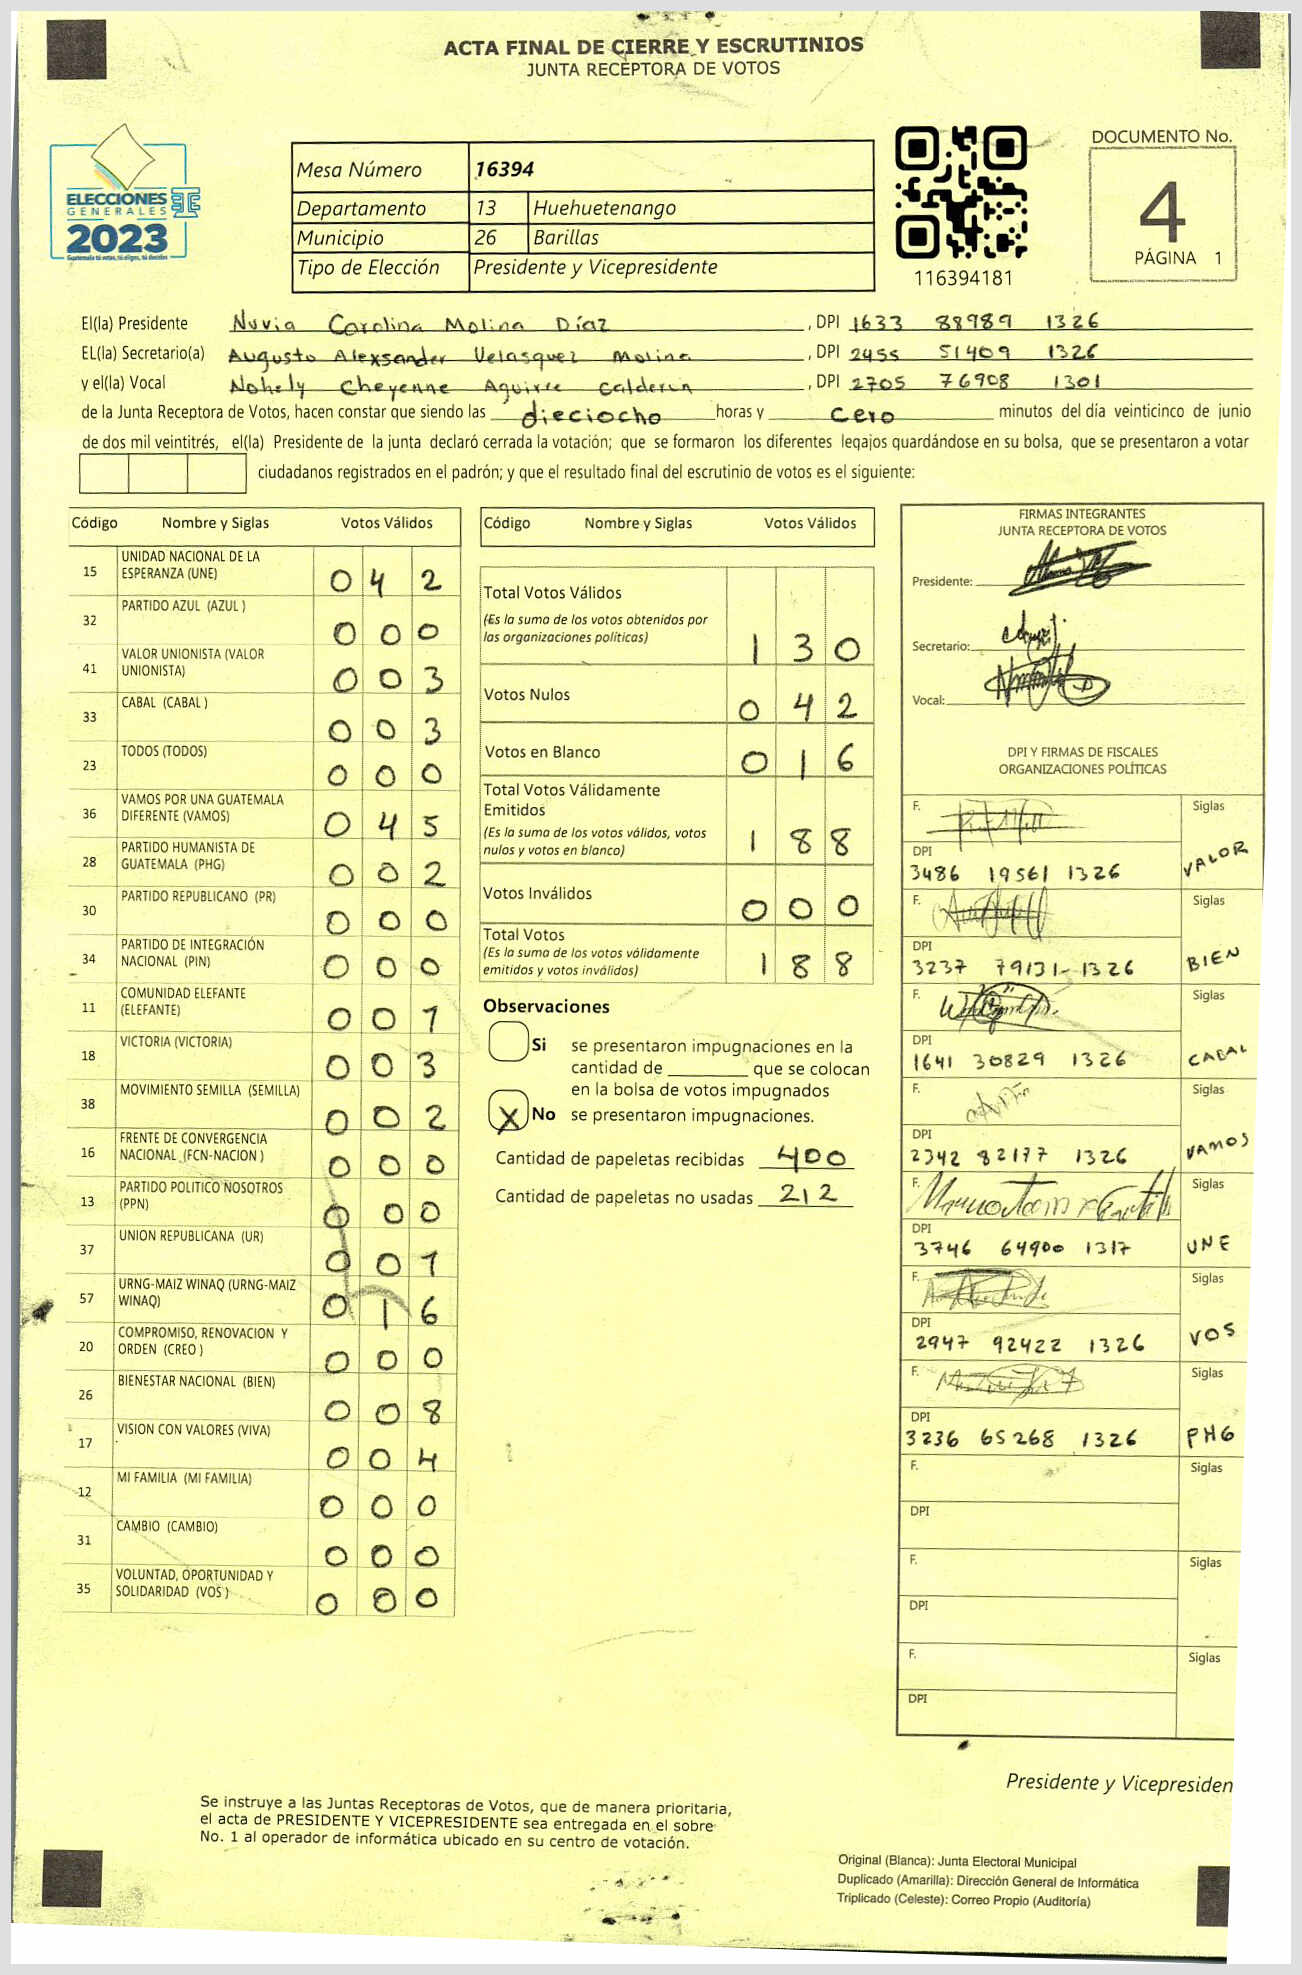 ACTA FINAL DE CIERRE Y ESCRUTINIOS
JUNTA RECEPTORA DE VOTOS
ELECCIONES
GENERALES
2023
Guatemala tú votas, tú eliges, tú decides
Mesa Número 16394
Departamento 13 Huehuetenango
Municipio 26 Barillas
Tipo de Elección Presidente y Vicepresidente
116394181
DOCUMENTO No.
4
PÁGINA 1
El(la) Presidente Nuvia Carolina Molina Díaz , DPI 1633 88989 1326
EL(la) Secretario(a) Augusto Alexsander Velasquez Molina , DPI 2455 51409 1326
y el(la) Vocal Nohely Cheyenne Aguirre Calderin , DPI 2705 76908 1301
de la Junta Receptora de Votos, hacen constar que siendo las dieciocho horas y cero minutos del día veinticinco de junio
de dos mil veintitrés, el(la) Presidente de la junta declaró cerrada la votación; que se formaron los diferentes legajos guardándose en su bolsa, que se presentaron a votar
ciudadanos registrados en el padrón; y que el resultado final del escrutinio de votos es el siguiente:
Código Nombre y Siglas Votos Válidos
15 UNIDAD NACIONAL DE LA ESPERANZA (UNE) 0 4 2
32 PARTIDO AZUL (AZUL ) 0 0 0
41 VALOR UNIONISTA (VALOR UNIONISTA) 0 0 3
33 CABAL (CABAL ) 0 0 3
23 TODOS (TODOS) 0 0 0
36 VAMOS POR UNA GUATEMALA DIFERENTE (VAMOS) 0 4 5
28 PARTIDO HUMANISTA DE GUATEMALA (PHG) 0 0 2
30 PARTIDO REPUBLICANO (PR) 0 0 0
34 PARTIDO DE INTEGRACIÓN NACIONAL (PIN) 0 0 0
11 COMUNIDAD ELEFANTE (ELEFANTE) 0 0 1
18 VICTORIA (VICTORIA) 0 0 3
38 MOVIMIENTO SEMILLA (SEMILLA) 0 0 2
16 FRENTE DE CONVERGENCIA NACIONAL (FCN-NACION ) 0 0 0
13 PARTIDO POLITICO NOSOTROS (PPN) 0 0 0
37 UNION REPUBLICANA (UR) 0 0 1
57 URNG-MAIZ WINAQ (URNG-MAIZ WINAQ) 0 1 6
20 COMPROMISO, RENOVACION Y ORDEN (CREO ) 0 0 0
26 BIENESTAR NACIONAL (BIEN) 0 0 8
17 VISION CON VALORES (VIVA) 0 0 4
12 MI FAMILIA (MI FAMILIA) 0 0 0
31 CAMBIO (CAMBIO) 0 0 0
35 VOLUNTAD, OPORTUNIDAD Y SOLIDARIDAD (VOS ) 0 0 0
Código Nombre y Siglas Votos Válidos
Total Votos Válidos
(Es la suma de los votos obtenidos por
las organizaciones políticas) 1 3 0
Votos Nulos 0 4 2
Votos en Blanco 0 1 6
Total Votos Válidamente
Emitidos
(Es la suma de los votos válidos, votos
nulos y votos en blanco) 1 8 8
Votos Inválidos 0 0 0
Total Votos
(Es la suma de los votos válidamente
emitidos y votos inválidos) 1 8 8
Observaciones
Si se presentaron impugnaciones en la
cantidad de ________ que se colocan
en la bolsa de votos impugnados
X No se presentaron impugnaciones.
Cantidad de papeletas recibidas 400
Cantidad de papeletas no usadas 212
FIRMAS INTEGRANTES
JUNTA RECEPTORA DE VOTOS
Presidente:
Secretario:
Vocal:
DPI Y FIRMAS DE FISCALES
ORGANIZACIONES POLÍTICAS
F. Siglas
DPI
3486 19561 1326 VALOR
F. Siglas
DPI
3237 79131 1326 BIEN
F. Siglas
DPI
1641 30829 1326 CABAL
F. Siglas
DPI
2342 82177 1326 VAMOS
F. Siglas
DPI
3746 64900 1317 UNE
F. Siglas
DPI
2947 92422 1326 VOS
F. Siglas
DPI
3236 65268 1326 PHG
F. Siglas
DPI
F. Siglas
DPI
F. Siglas
DPI
Presidente y Vicepresiden
Se instruye a las Juntas Receptoras de Votos, que de manera prioritaria,
el acta de PRESIDENTE Y VICEPRESIDENTE sea entregada en el sobre
No. 1 al operador de informática ubicado en su centro de votación.
Original (Blanca): Junta Electoral Municipal
Duplicado (Amarilla): Dirección General de Informática
Triplicado (Celeste): Correo Propio (Auditoría)